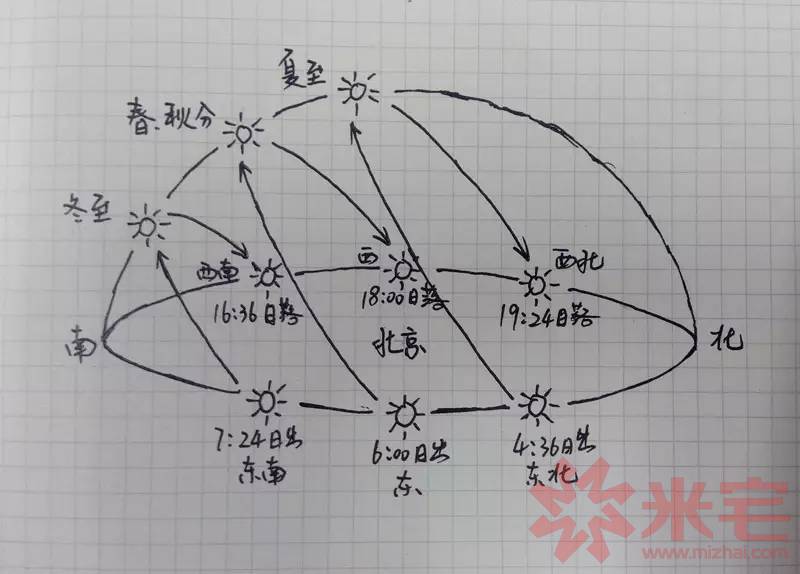 夏至
春.秋分
冬至
西南
16:36日落
西
18:00日落
西北
19:24日落
南
北京
北
7:24日出
东南
6:00日出
东
4:36日出
东北
米宅
www.mizhai.com